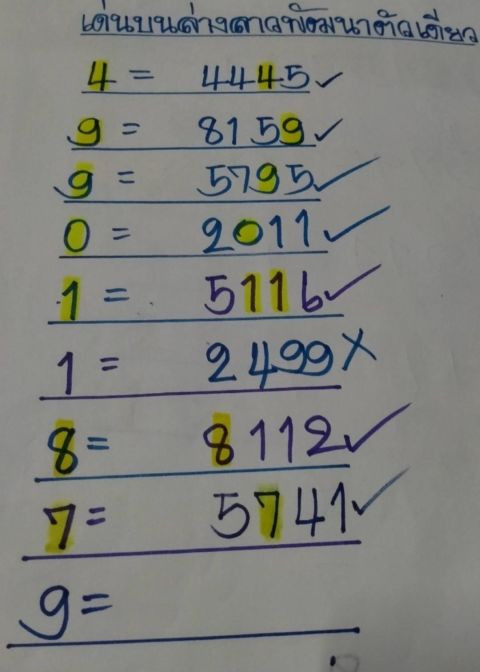 เด่นบนล่างลาวพัฒนาตัวเดียว
4 = 4445 ✓
9 = 8159 ✓
9 = 5795 ✓
0 = 2011 ✓
1 = 5116 ✓
1 = 2499 X
8 = 8112 ✓
7 = 5741 ✓
9 =